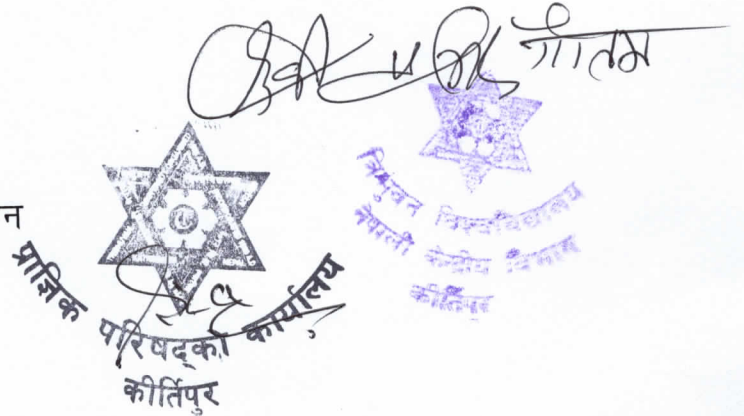 गौतम
न
प्राज्ञिक परिषद्को कार्यालय
कीर्तिपुर
त्रिभुवन विश्वविद्यालय
नेपाली केन्द्रीय विभाग
कीर्तिपुर